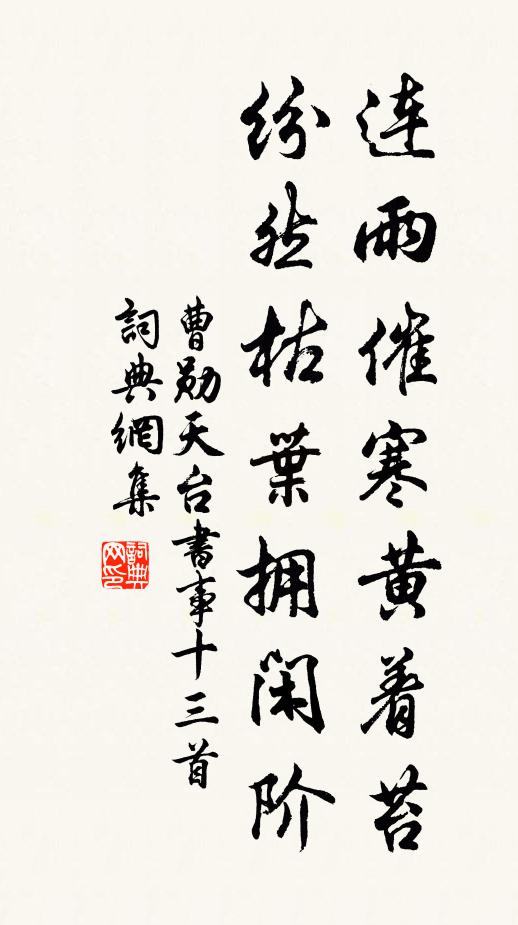 連雨催寒黄着苔
纷然枯葉拥闲阶
曹勛天台書事十三首
詞典網集
詞典网印